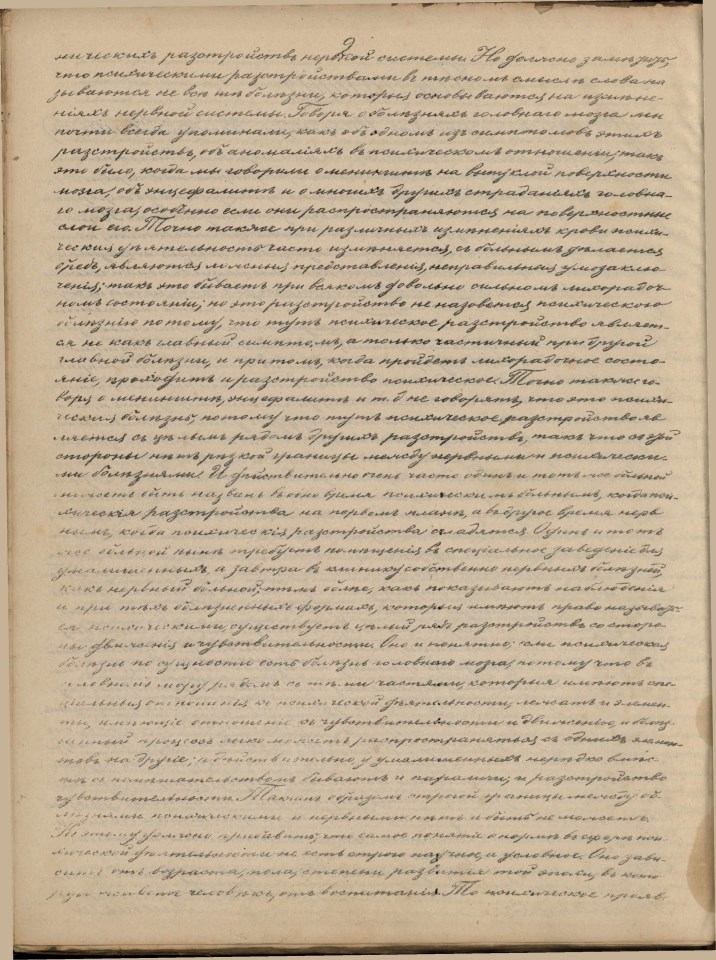 2
ническихъ разстройствъ нервной системы. Но должно замѣтить,
что психическими разстройствами въ тѣсномъ смыслѣ слова на
зываются не всѣ тѣ болѣзни, которыя основываются на измѣне-
ніяхъ нервной системы. Говоря о болѣзняхъ головнаго мозга мы
почти всегда упоминали, какъ объ одномъ изъ симптомовъ этихъ
разстройствъ, объ аномаліяхъ въ психическомъ отношеніи; такъ
это было, когда мы говорили о менингитѣ на выпуклой поверхности
мозга, объ энцефалитѣ и о многихъ другихъ страданіяхъ головна-
го мозга, особенно если они распространяются на поверхностные
слои его. Точно также при различныхъ измѣненіяхъ крови психи-
ческая дѣятельность часто измѣняется, съ больнымъ дѣлается
бредъ, являются ложныя представленія, неправильныя умозаклю-
ченія; такъ это бываетъ при всякомъ довольно сильномъ лихорадоч-
номъ состояніи; но это разстройство не назовется психическою
болѣзнію потому, что тутъ психическое разстройство являет-
ся не какъ главный симптомъ, а только частичный при другой
главной болѣзни, и притомъ, когда пройдетъ лихорадочное состо-
яніе, проходитъ и разстройство психическое. Точно также го-
воря о менингитѣ, энцефалитѣ и т. д. не говорятъ, что это психи-
ческая болѣзнь, потому что тутъ психическое разстройство яв-
ляется съ цѣлымъ рядомъ другихъ разстройствъ, такъ что съ этой
стороны нѣтъ рѣзкой границы между нервными и психически-
ми болѣзнями. И дѣйствительно очень часто одинъ и тотъ же больной
можетъ быть названъ въ одно время психическимъ больнымъ, когда пси-
хическія разстройства на первомъ планѣ, а въ другое время нерв
нымъ, когда психическія разстройства сгладятся. Одинъ и тотъ
же больной нынѣ требуетъ помѣщенія въ спеціальное заведеніе для
умалишенныхъ, а завтра въ клинику собственно нервныхъ болѣзней,
какъ нервный больной; тѣмъ болѣе, какъ показываютъ наблюденія
и при тѣхъ болѣзненныхъ формахъ, которыя имѣютъ право называть-
ся психическими, существуетъ цѣлый рядъ разстройствъ со сторо-
ны движенія и чувствительности. Оно и понятно: если психическая
болѣзнь по сущности есть болѣзнь головнаго мозга, потому что въ
головномъ мозгу рядомъ съ тѣми частями, которыя имѣютъ спе-
ціальныя отношенія къ психической дѣятельности, лежатъ и элемен-
ты, имѣющіе отношеніе къ чувствительности и движенію, и болѣз-
ненный процессъ легко можетъ распространяться съ однихъ элемен-
товъ на другіе; и дѣйствительно, у умалишенныхъ нерѣдко вмѣс-
тѣ съ помѣшательствомъ бываютъ и параличи, и разстройство
чувствительности. Такимъ образомъ строгой границы между бо-
лѣзнями психическими и нервными нѣтъ и быть не можетъ.
Къ этому должно прибавить, что самое понятіе о нормѣ въ сферѣ пси-
хической дѣятельности не есть строго научное, а условное. Оно зави-
ситъ отъ возраста, пола, степени развитія той эпохи, въ кото-
рую живетъ человѣкъ, отъ воспитанія. То психическое прояв-